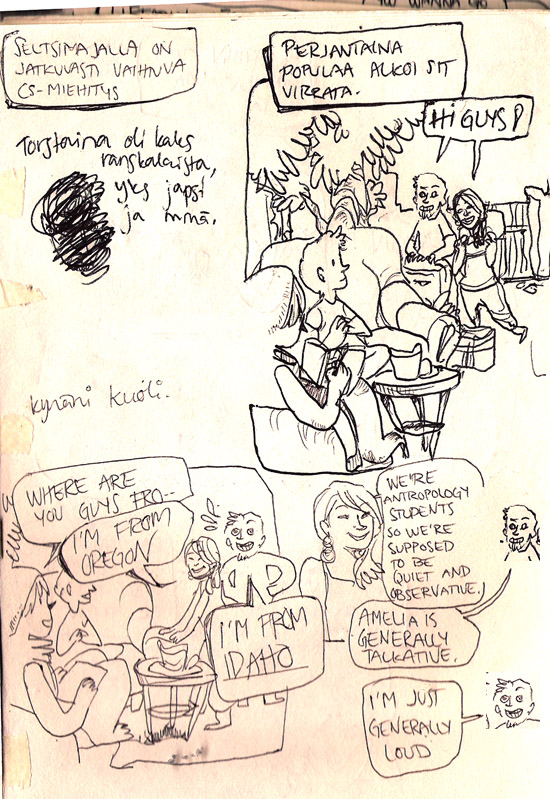 YOU WANNA
SELTSIMAJALLA ON
JATKUVASTI VAIHTUVA
CS-MIEHITYS
PERJANTAINA
POPULAA ALKOI SIT
VIRRATA.
HI GUYS!
Torstaina oli kaks
ranskalaista,
yks japsi
ja mmä.
kynäni kuoli.
WHERE ARE
YOU GUYS FRO--
I'M FROM
OREGON
I'M FROM
IDAHO
WE'RE
ANTROPOLOGY
STUDENTS
SO WE'RE
SUPPOSED
TO BE
QUIET AND
OBSERVATIVE.
AMELIA IS
GENERALLY
TALKATIVE.
I'M JUST
GENERALLY
LOUD